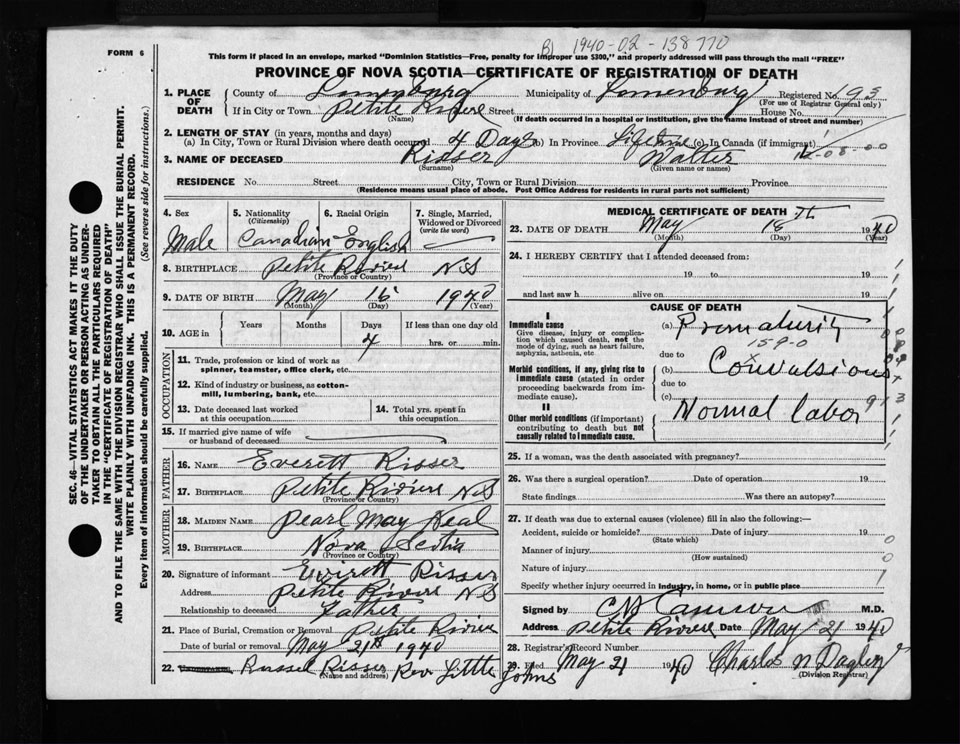 B) 1940-02-138770
FORM 6
This form if placed in an envelope, marked "Dominion Statistics—Free, penalty for improper use $300," and properly addressed will pass through the mail "FREE"
PROVINCE OF NOVA SCOTIA—CERTIFICATE OF REGISTRATION OF DEATH
1. PLACE OF DEATH County of Lunenburg Municipality of Lunenburg Registered No. 93
(For use of Registrar General only)
If in City or Town Petite Riviere Street House No.
(Name) (If death occurred in a hospital or institution, give the name instead of street and number)
2. LENGTH OF STAY (in years, months and days)
(a) In City, Town or Rural Division where death occurred 4 Days (b) In Province Lifetime (c) In Canada (if immigrant)
3. NAME OF DECEASED Risser Walter
(Surname) (Given name or names)
RESIDENCE No. Street City, Town or Rural Division Province
(Residence means usual place of abode. Post Office Address for residents in rural parts not sufficient)
4. Sex Male
5. Nationality (Citizenship) Canadian
6. Racial Origin English
7. Single, Married, Widowed or Divorced (write the word)
8. BIRTHPLACE Petite Riviere N S
(Province or Country)
9. DATE OF BIRTH May 16 1940
(Month) (Day) (Year)
10. AGE in Years Months Days 4 If less than one day old hrs. or min.
OCCUPATION
11. Trade, profession or kind of work as spinner, teamster, office clerk, etc.
12. Kind of industry or business, as cotton-mill, lumbering, bank, etc.
13. Date deceased last worked at this occupation
14. Total yrs. spent in this occupation
15. If married give name of wife or husband of deceased
FATHER
16. NAME Everett Risser
17. BIRTHPLACE Petite Riviere N S
(Province or Country)
MOTHER
18. MAIDEN NAME Pearl May Heal
19. BIRTHPLACE Nova Scotia
(Province or Country)
20. Signature of informant Everett Risser
Address Petite Riviere N S
Relationship to deceased Father
21. Place of Burial, Cremation or Removal Petite Riviere
Date of burial or removal May 21st 1940
22. Russel Risser Rev. Little Johns
(Name and address)
MEDICAL CERTIFICATE OF DEATH
23. DATE OF DEATH May 1940
(Month) (Day) (Year)
24. I HEREBY CERTIFY that I attended deceased from:
19 to 19
and last saw h alive on 19
CAUSE OF DEATH
I
Immediate cause
Give disease, injury or complication which caused death, not the mode of dying, such as heart failure, asphyxia, asthenia, etc
(a) Prematurity
159-0
due to
Morbid conditions, if any, giving rise to immediate cause (stated in order proceeding backwards from immediate cause).
(b) Convulsions
due to
(c) Normal labor
II
Other morbid conditions (if important) contributing to death but not causally related to immediate cause.
25. If a woman, was the death associated with pregnancy?
26. Was there a surgical operation? Date of operation 19
State findings Was there an autopsy?
27. If death was due to external causes (violence) fill in also the following:—
Accident, suicide or homicide? Date of injury 19
(State which)
Manner of injury
(How sustained)
Nature of injury
Specify whether injury occurred in industry, in home, or in public place
Signed by M.D.
Address Petite Riviere Date May 21 1940
28. Registrar's Record Number
29. Filed May 21 1940 Charles N
(Division Registrar)
SEC. 46—VITAL STATISTICS ACT MAKES IT THE DUTY
OF THE UNDERTAKER OR PERSON ACTING AS UNDER-
TAKER TO OBTAIN ALL THE PARTICULARS REQUIRED
IN THE "CERTIFICATE OF REGISTRATION OF DEATH"
AND TO FILE THE SAME WITH THE DIVISION REGISTRAR WHO SHALL ISSUE THE BURIAL PERMIT.
WRITE PLAINLY WITH UNFADING INK. THIS IS A PERMANENT RECORD.
Every item of information should be carefully supplied. (See reverse side for instructions.)